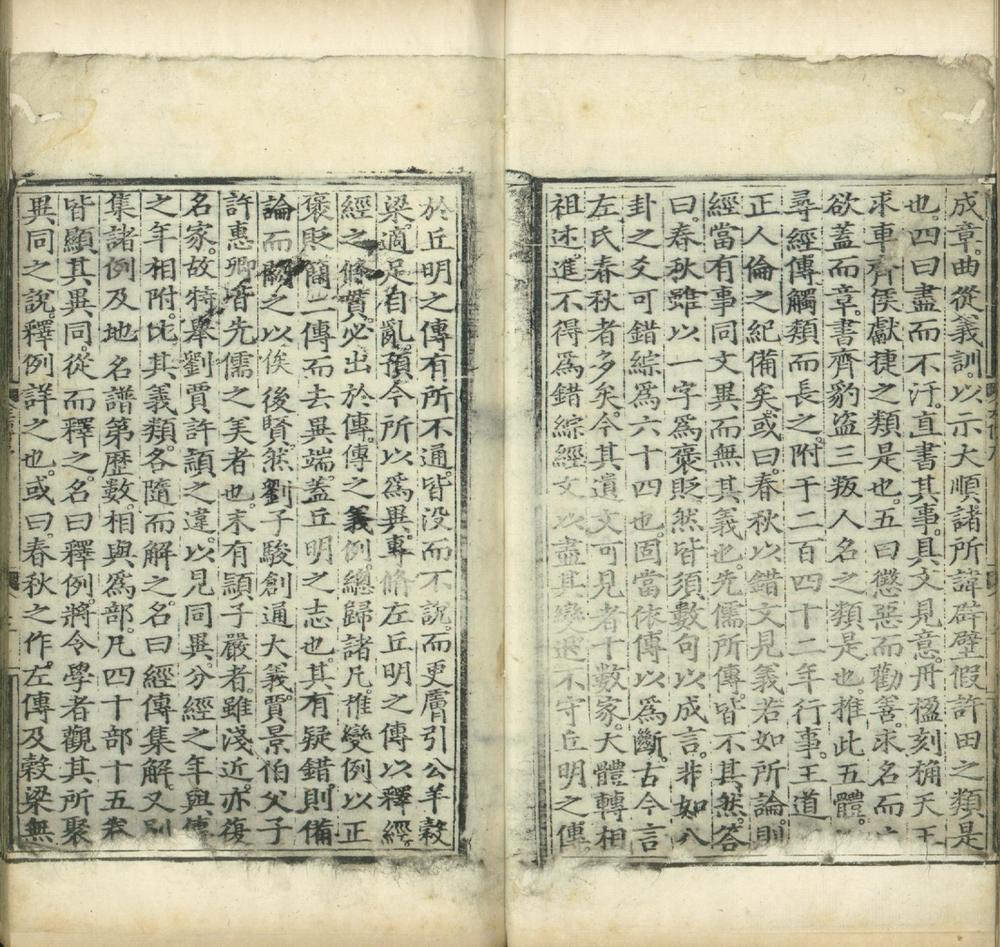 成章。曲從義訓。以示大順諸所諱辟璧假許田之類是
也。四曰盡而不汙。直書其事。具文見意。丹楹刻桷天王
求車齊侯獻捷之類是也。五曰懲惡而勸善。求名而
欲蓋而章。書齊豹盜三叛人名之類是也。推此五體。
尋經傳。觸類而長之。附于二百四十二年行事。王道
正人倫之紀備矣。或曰。春秋以錯文見義。若如所論。則
經當有事同文異而無其義也。先儒所傳。皆不其然。答
曰。春秋雖以一字爲褒貶。然皆須數句以成言。非如八
卦之爻可錯綜爲六十四也。固當依傳以爲斷。古今言
左氏春秋者多矣。今其遺文可見者十數家。大體轉相
祖述。進不得爲錯綜經文以盡其變。退不守丘明之傳
於丘明之傳有所不通。皆没而不說。而更膚引公羊穀
梁。適足自亂。預今所以爲異。專脩左丘明之傳以釋經。
經之條貫。必出於傳。傳之義例。總歸諸凡。推變例以正
褒貶。簡二傳而去異端。蓋丘明之志也。其有疑錯。則備
論而闕之。以俟後賢。然劉子駿創通大義。賈景伯父子
許惠卿皆先儒之美者也。末有頴子嚴者。雖淺近。亦復
名家。故特舉劉賈許頴之違。以見同異。分經之年與傳
之年相附。比其義類。各隨而解之。名曰經傳集解。又別
集諸例及地名譜第歷數。相與爲部。凡四十部十五卷
皆顯其異同。從而釋之。名曰釋例。將令學者觀其所聚
異同之說。釋例詳之也。或曰。春秋之作。左傳及穀梁無